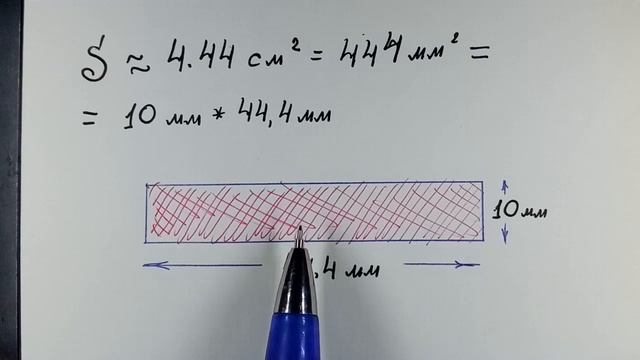 S ≈ 4.44 см² = 444 мм² =
= 10 мм * 44,4 мм
10 мм
,4 мм